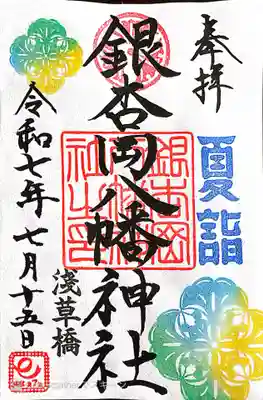 奉拝
夏詣
銀杏岡八幡神社
浅草橋
令和七年七月十五日